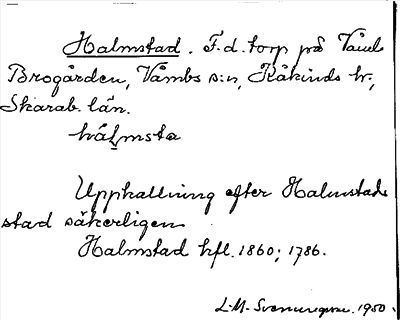 Halmstad. F.d. torp på Våmb
Brogården, Våmbs s:n, Kåkinds hr,
Skarab. län.
hálmsta
Uppkallning efter Halmstads
stad säkerligen
Halmstad hfl. 1860; 1786.
L-M. Svenungsson. 1950.